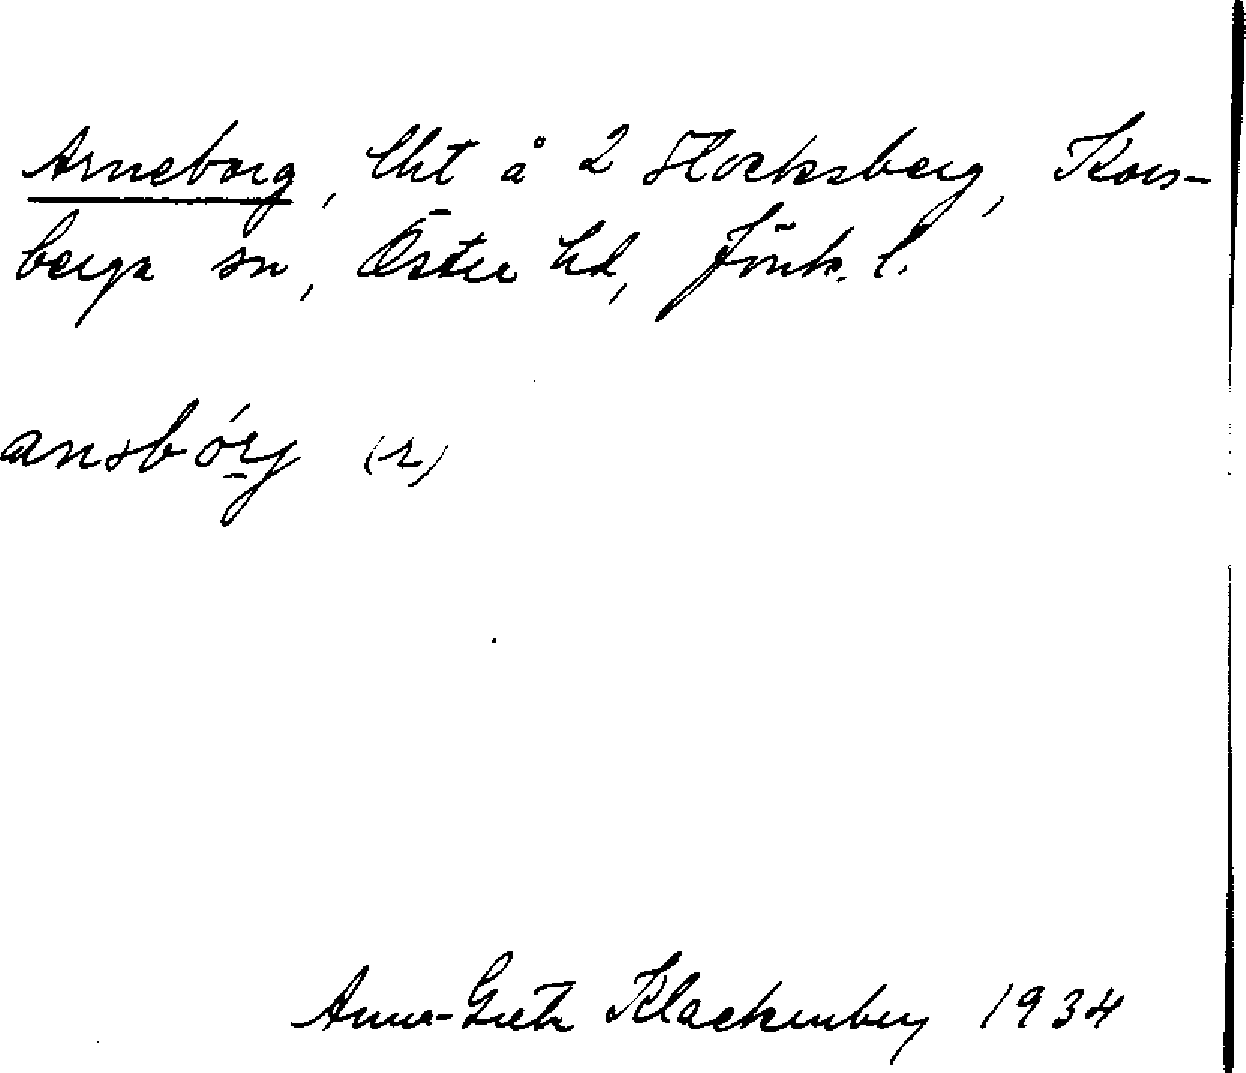 Arneborg, lht å 2 Stocksberg, Kors-
berga sn, Östra hd, Jönk. l.
ansbórj (-r)
Anna-Greta Klackenberg 1934